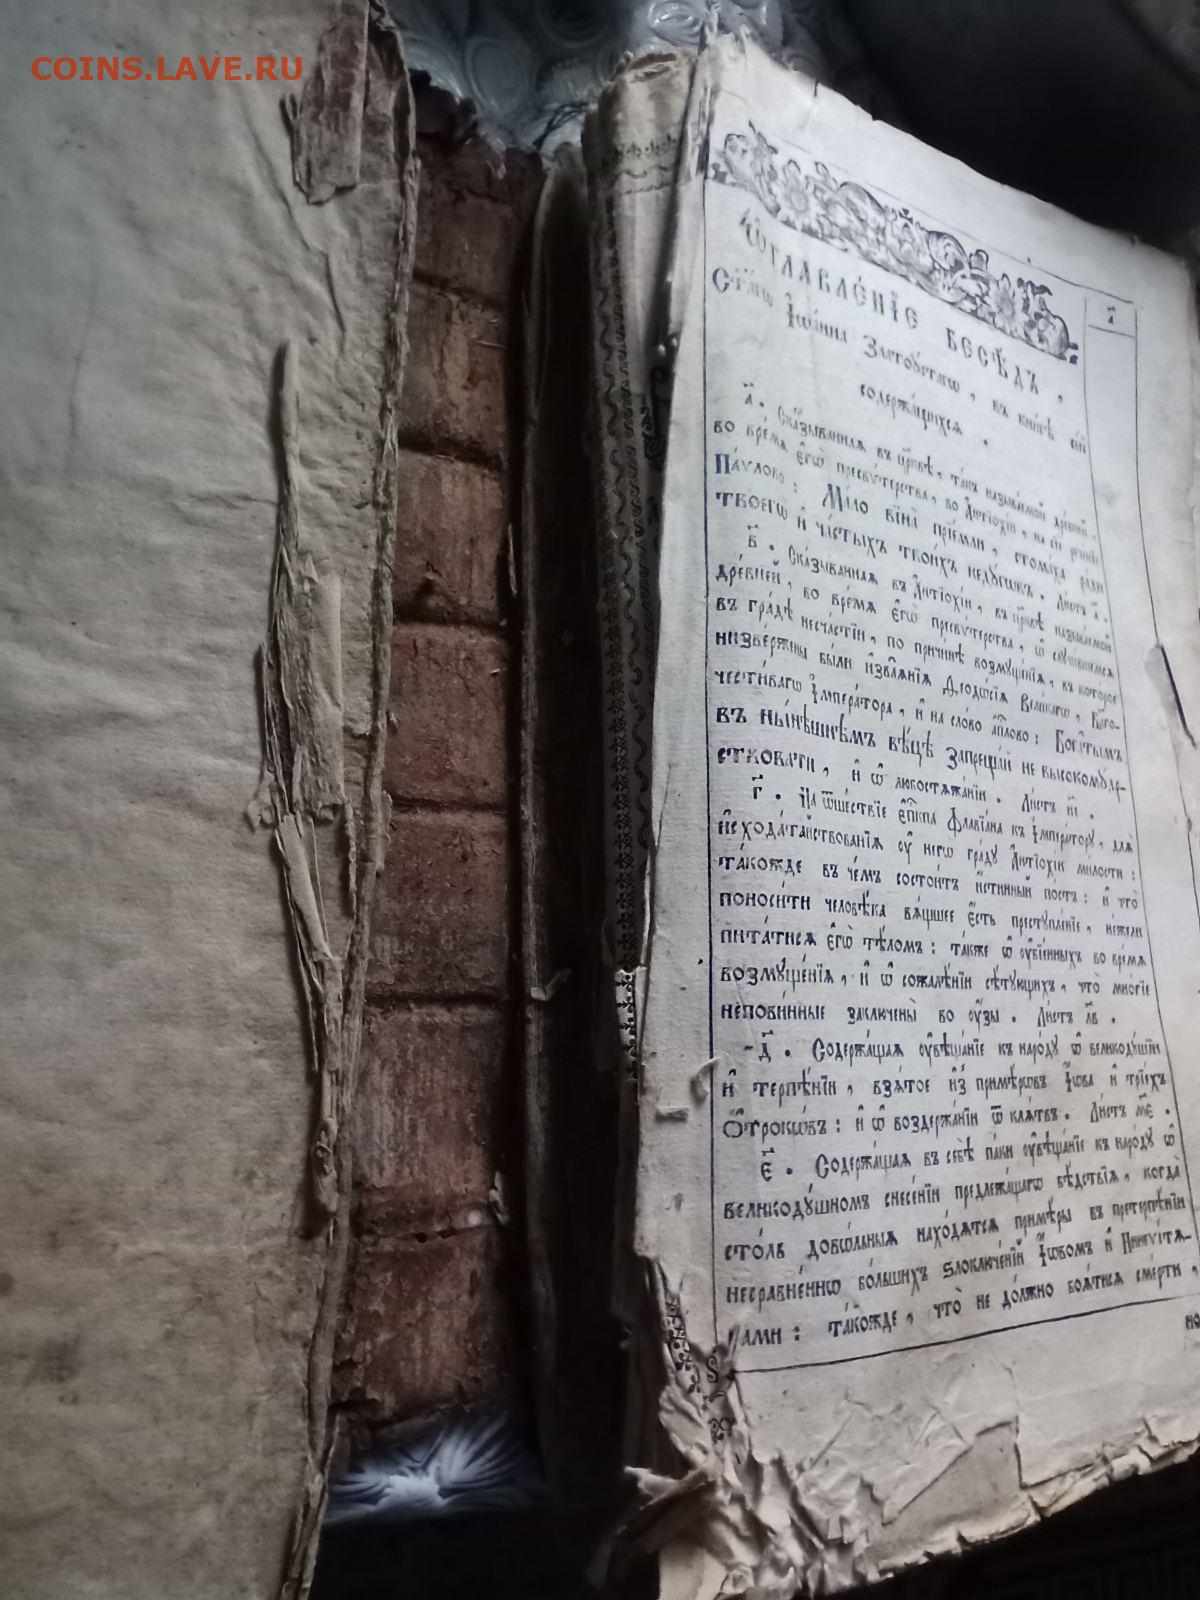 COINS.LAVE.RU
Ѡ҆ГЛАВЛЕ́НІЕ БЕСѢ́ДЪ,
а҃
Ст҃а́гѡ І҆ѡа́нна Златоу́стагѡ, въ кни́гѣ се́й
содержа́щихсѧ.
а҃. Ска́зыванная въ цр҃квѣ, та́къ называ́емой дре́вней,
во вре́мѧ є҆гѡ̀ пресвѵ́терства, во А҆нтїохі́и, на сїѝ рѣ́чи
Па́ѵловы: Ма́ло вїна̀ прїе́мли, стома́ха ра́ди
твоегѡ̀ и҆ ча́стыхъ твои́хъ неду́гѡвъ. Ли́стъ а҃.
в҃. Ска́зыванная въ А҆нтїохі́и, въ цр҃квѣ называ́емой
дре́вней, во вре́мѧ є҆гѡ̀ пресвѵ́терства, ѡ҆ случи́вшемсѧ
въ гра́дѣ несча́стїи, по причи́нѣ возмуще́нїѧ, въ кото́рое
низве́ржены бы́ли и҆зваѧ̑нїѧ Ѳеодо́сїѧ Вели́кагѡ, Бл҃го-
чести́вагѡ І҆мпера́тора, и҆ на сло́во а҆пⷭ҇лово: Бога̑тымъ
въ ны́нѣшнемъ вѣ́цѣ запреща́й не высокому́др-
ствовати, и҆ ѡ҆ любостѧжа́нїи. Ли́стъ и҃і.
г҃. На ѿше́ствїе є҆пⷭ҇кпа Флавїа́на къ І҆мпера́тору, длѧ̀
и҆схода́тайствованїѧ ᲂу҆ негѡ̀ гра́ду А҆нтїохі́и ми́лости:
та́кожде въ че́мъ состои́тъ и҆́стинный по́стъ: и҆ что̀
поноси́ти человѣ́ка вѧ́щшее є҆́сть преступле́нїе, не́жели
пита́тисѧ є҆гѡ̀ тѣ́ломъ: та́кже ѡ҆ ᲂу҆бїе́нныхъ во вре́мѧ
возмуще́нїѧ, и҆ ѡ҆ сожалѣ́нїи сѣ́тующихъ, что̀ мно́гїе
непови́нные заключены̀ во ᲂу҆́зы. Ли́стъ л҃в.
д҃. Содержа́щаѧ ᲂу҆вѣща́нїе къ наро́ду ѡ҆ великоду́шїи
и҆ терпѣ́нїи, взѧ́тое и҆з̾ примѣ́рѡвъ І҆́ѡва и҆ трїе́хъ
Ѻ҆́трокѡвъ: и҆ ѡ҆ воздержа́нїи ѿ клѧ́твъ. Ли́стъ м҃є.
є҃. Содержа́щаѧ въ себѣ̀ па́ки ᲂу҆вѣща́нїе къ наро́ду ѡ҆
великоду́шномъ снесе́нїи предлежа́щагѡ бѣ́дствїѧ, когда̀
сто́ль дово́льныѧ нахо́дѧтсѧ примѣ́ры въ претерпѣ́нїи
несравне́ннѡ бо́льшихъ ѕлоключе́нїй І҆́ѡвомъ и҆ Нїнеѵі́тѧ-
нами: та́кожде, что̀ не до́лжно боѧ́тисѧ сме́рти,
но